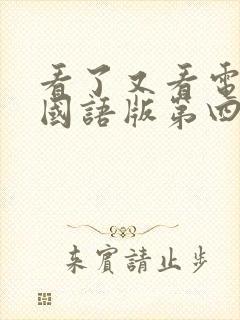 看了又看電
國語版第四
来賓請止步